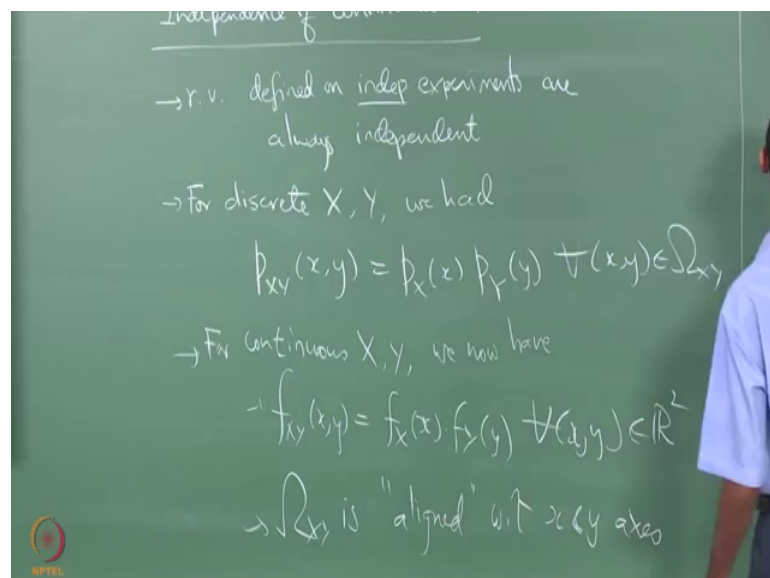 Independence of
→ r.v. defined on indep experiments are
always independent
→ For discrete X, Y, we had
p_XY (x,y) = p_X(x) p_Y(y) ∀(x,y)∈Ω_XY
→ For continuous X,Y, we now have
→ f_XY(x,y) = f_X(x). f_Y(y) ∀(x,y)∈ℝ²
→ Ω_XY is "aligned" w.r.t x & y axes
NPTEL